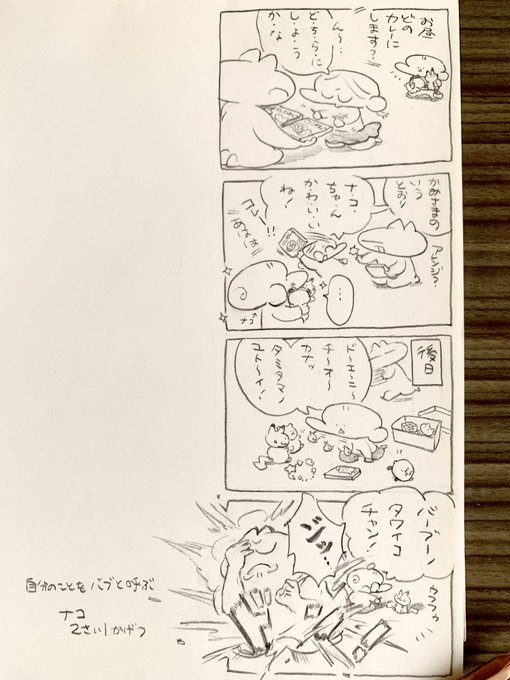 お昼
どの
カレーに
します?
ん〜…
ど・ち・ら・に
し・よ・う
か・な
かみさまの
いう
とおり
アレンジ?
ナ・コ・
ちゃん
か・わ・い・い
ね!
コレ!!
あはは
…
ナコ
後日
ド〜エ〜ニ〜
チ〜オ〜
カナッ
タミタマノ
ユト〜イ!
バーブーノ
タワイコ
チャン!
自分のことを バブと呼ぶ
ナコ
2さい1かげつ